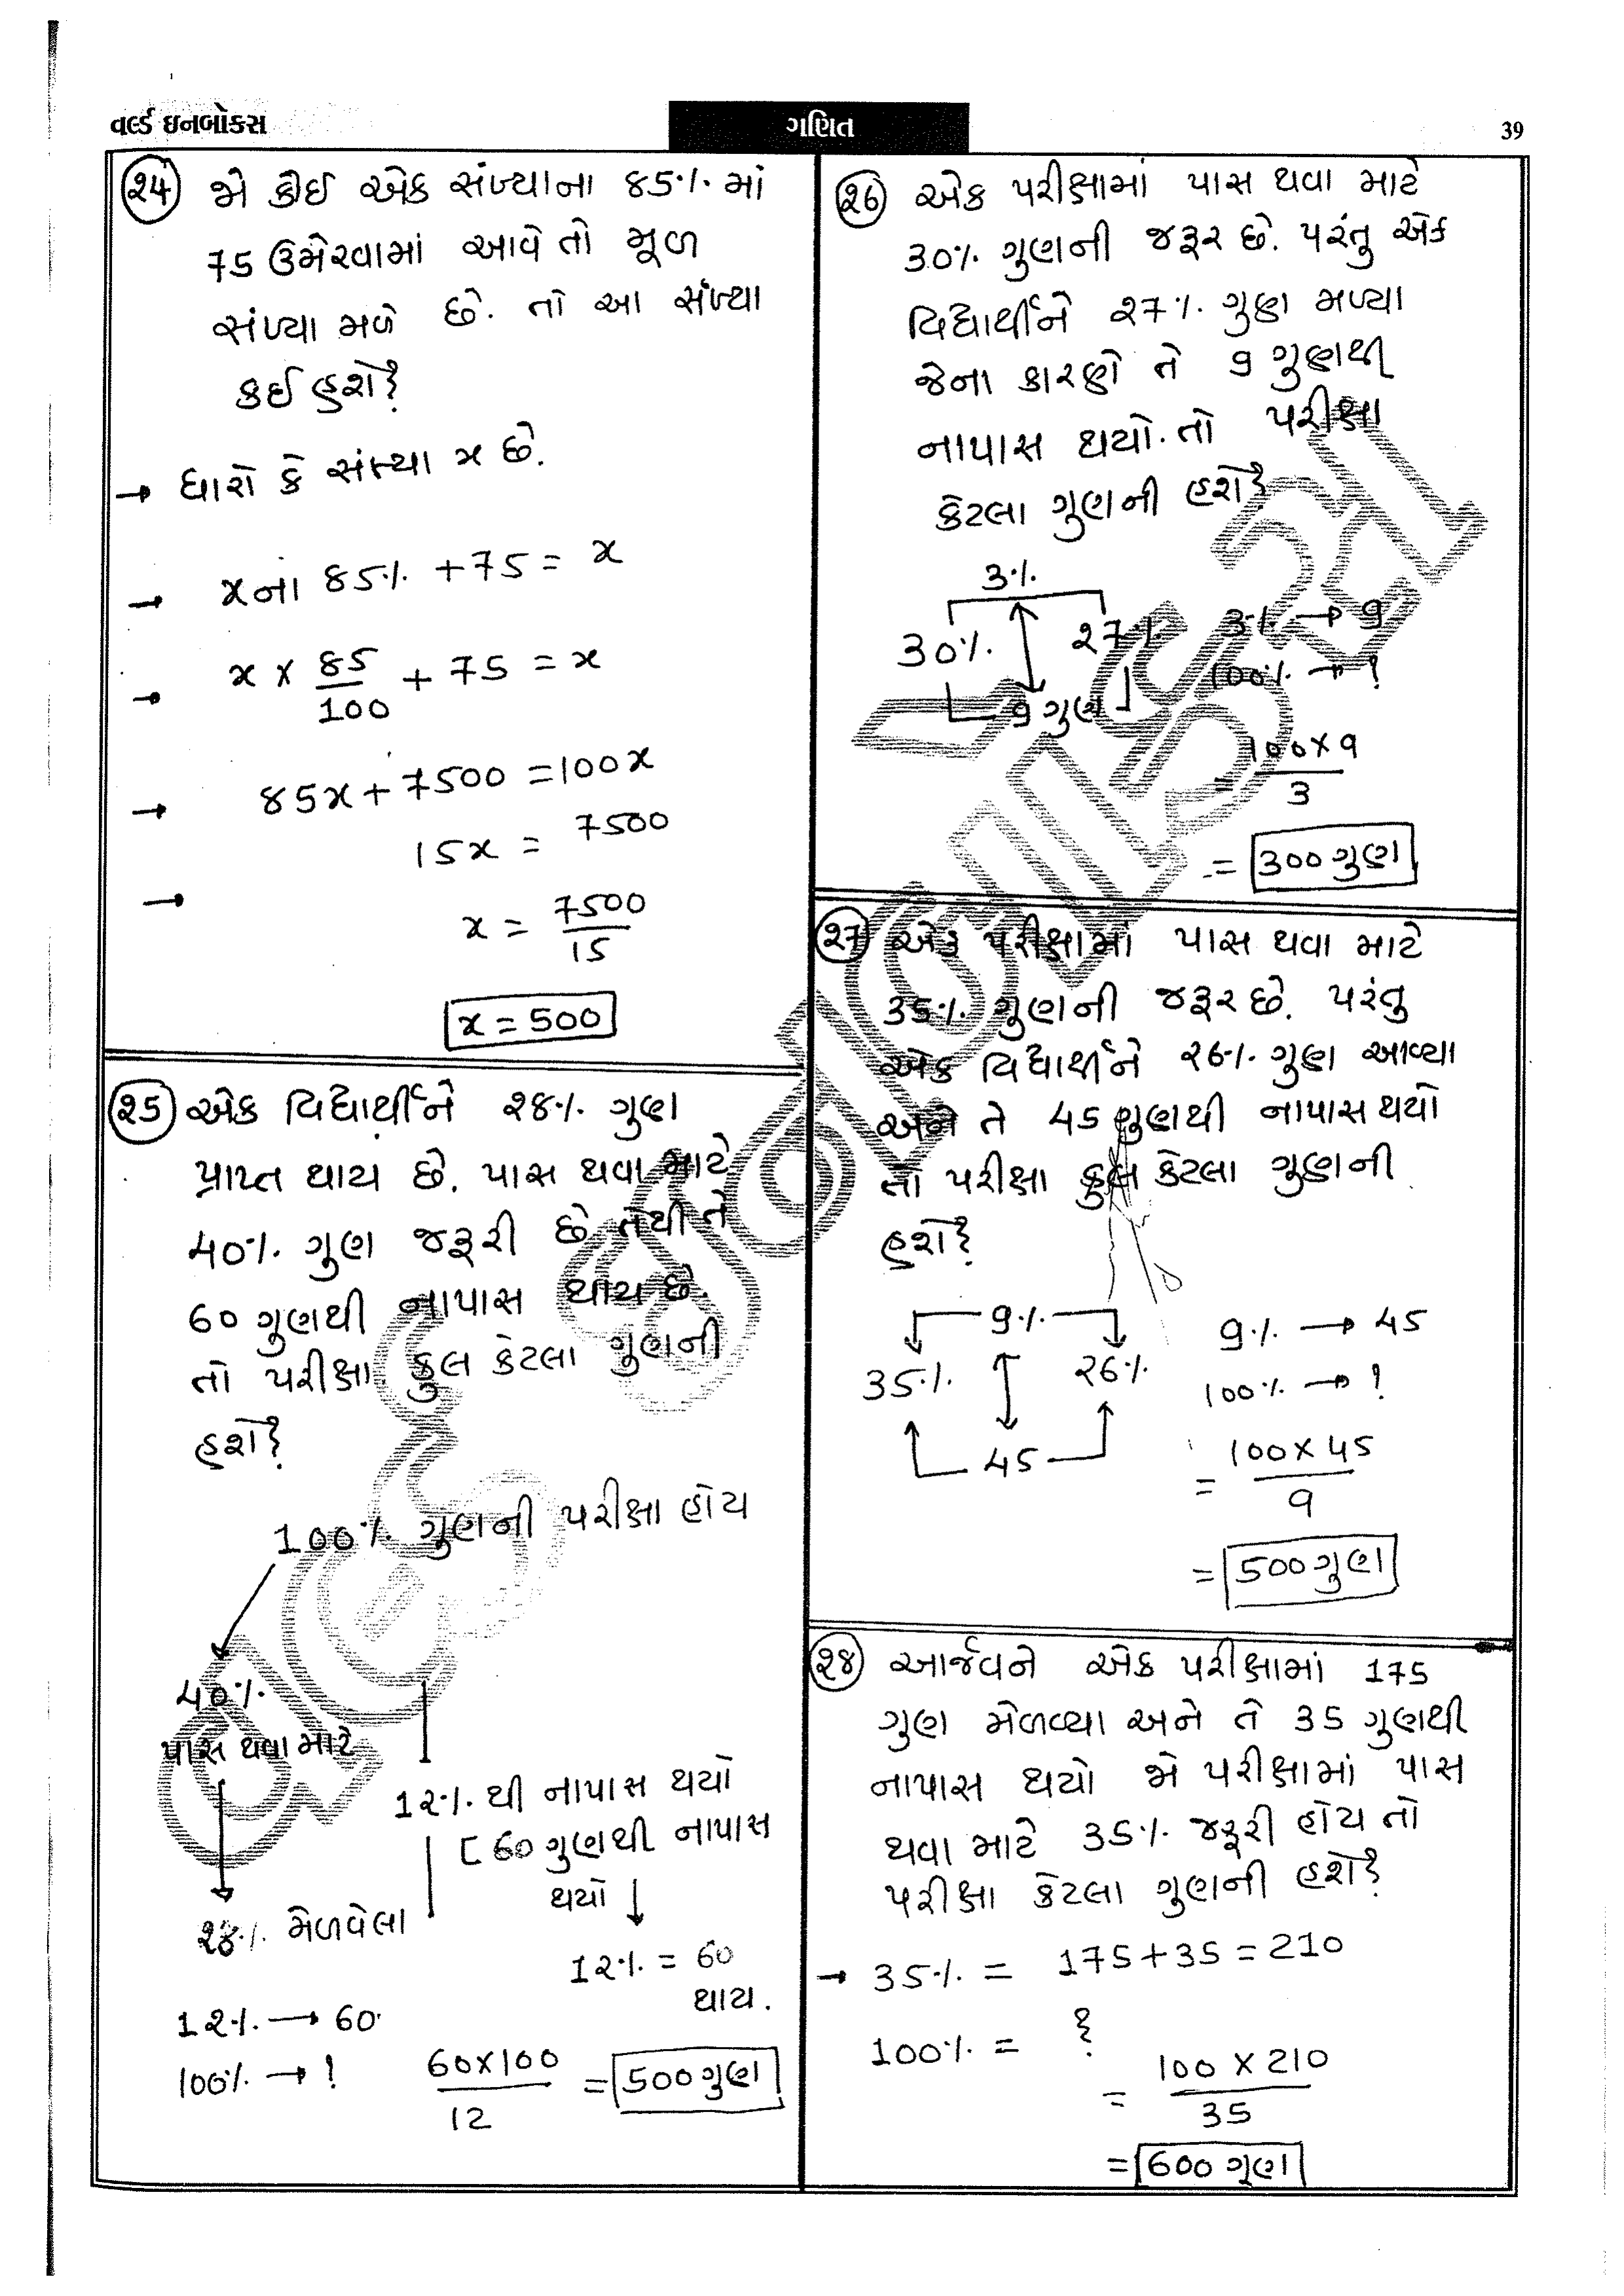 વર્લ્ડ ઇનબોક્સ
ગણિત
39
૨4 જો કોઈ એક સંખ્યાના ૪5% માં
75 ઉમેરવામાં આવે તો મૂળ
સંખ્યા મળે છે. તો આ સંખ્યા
કઈ હશે?
→ ધારો કે સંખ્યા x છે.
→ xના ૪5% + 75 = x
→ x × ૪5/100 + 75 = x
→ ૪5x + 7500 = 100x
15x = 7500
→ x = 7500/15
x = 500
૨5 એક વિદ્યાર્થીને ૨૪% ગુણ
પ્રાપ્ત થાય છે. પાસ થવા માટે
40% ગુણ જરૂરી છે તેથી તે
60 ગુણથી નાપાસ થાય છે.
તો પરીક્ષા કુલ કેટલા ગુણની
હશે?
100% ગુણની પરીક્ષા હોય
40%
પાસ થવા માટે
1૨% થી નાપાસ થયો
[60 ગુણથી નાપાસ
થયો ↓
૨૪% મેળવેલા
1૨% = 60
થાય.
1૨% → 60
100% → ?
60×100/12 = 500 ગુણ
૨6 એક પરીક્ષામાં પાસ થવા માટે
30% ગુણની જરૂર છે. પરંતુ એક
વિદ્યાર્થીને ૨7% ગુણ મળ્યા
જેના કારણે તે 9 ગુણથી
નાપાસ થયો. તો પરીક્ષા
કેટલા ગુણની હશે?
3%
30% ૨7%
9 ગુણ
3% → 9
100% → ?
= 100×9/3
= 300 ગુણ
૨7 એક પરીક્ષામાં પાસ થવા માટે
35% ગુણની જરૂર છે. પરંતુ
એક વિદ્યાર્થીને ૨6% ગુણ આવ્યા
અને તે 45 ગુણથી નાપાસ થયો
તો પરીક્ષા કુલ કેટલા ગુણની
હશે?
9%
35% ૨6%
45
9% → 45
100% → ?
= 100×45/9
= 500 ગુણ
૨૪ આર્જવને એક પરીક્ષામાં 175
ગુણ મેળવ્યા અને તે 35 ગુણથી
નાપાસ થયો જો પરીક્ષામાં પાસ
થવા માટે 35% જરૂરી હોય તો
પરીક્ષા કેટલા ગુણની હશે?
→ 35% = 175+35 = 210
100% = ?
= 100 × 210/35
= 600 ગુણ